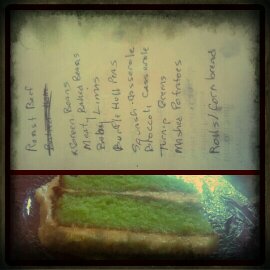 Roast Beef
Green Beans
Meaty Baked Beans
Baby Limas
Purple Hull Peas
Squash Casserole
Broccoli Casserole
Turnip Greens
Mashed Potatoes
Rolls/Corn bread